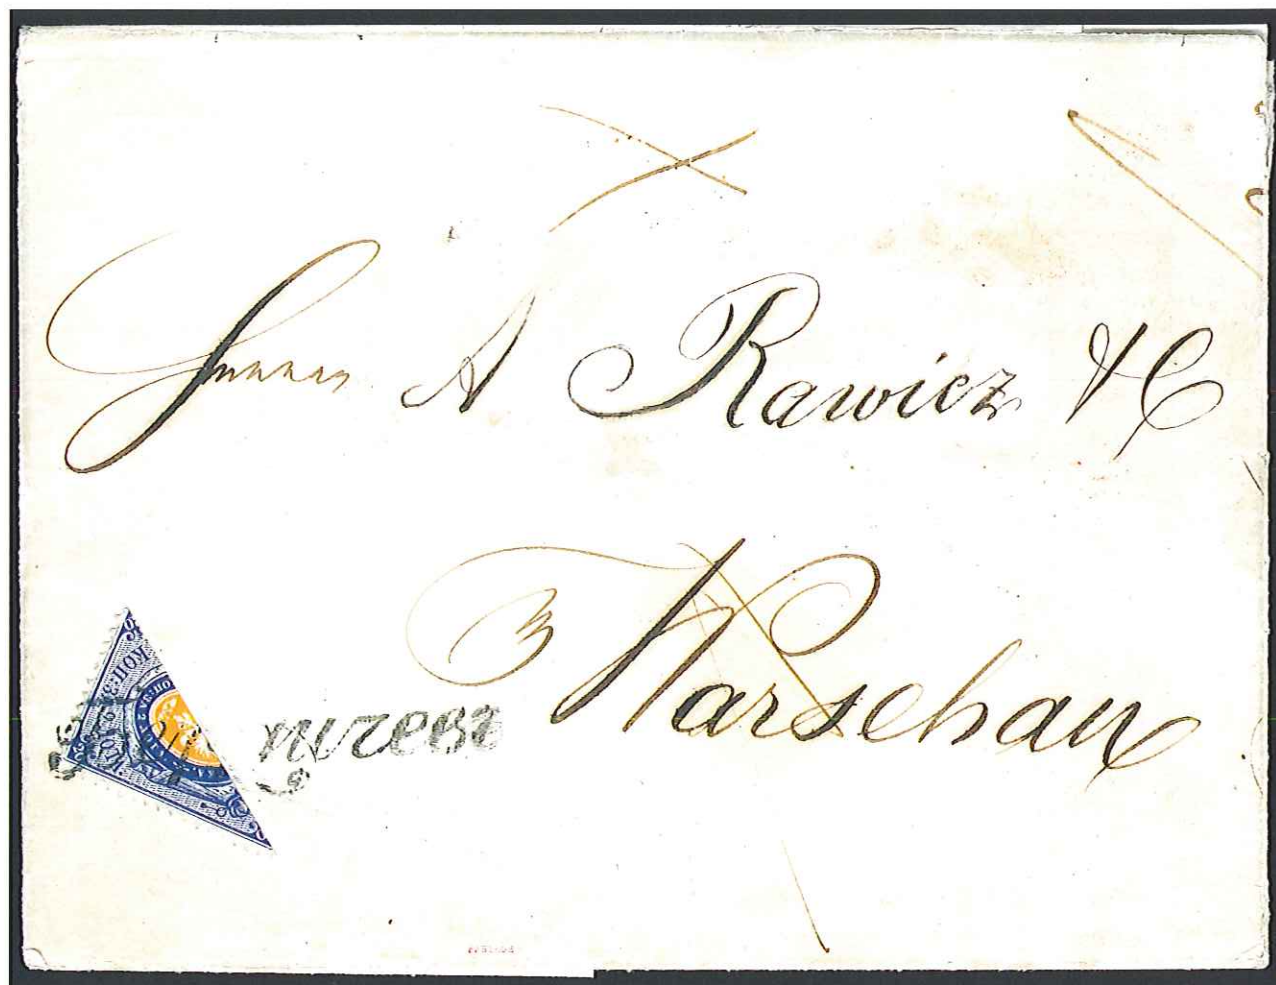 Herren A Rawicz & C
Warschau
КОП: ЗА